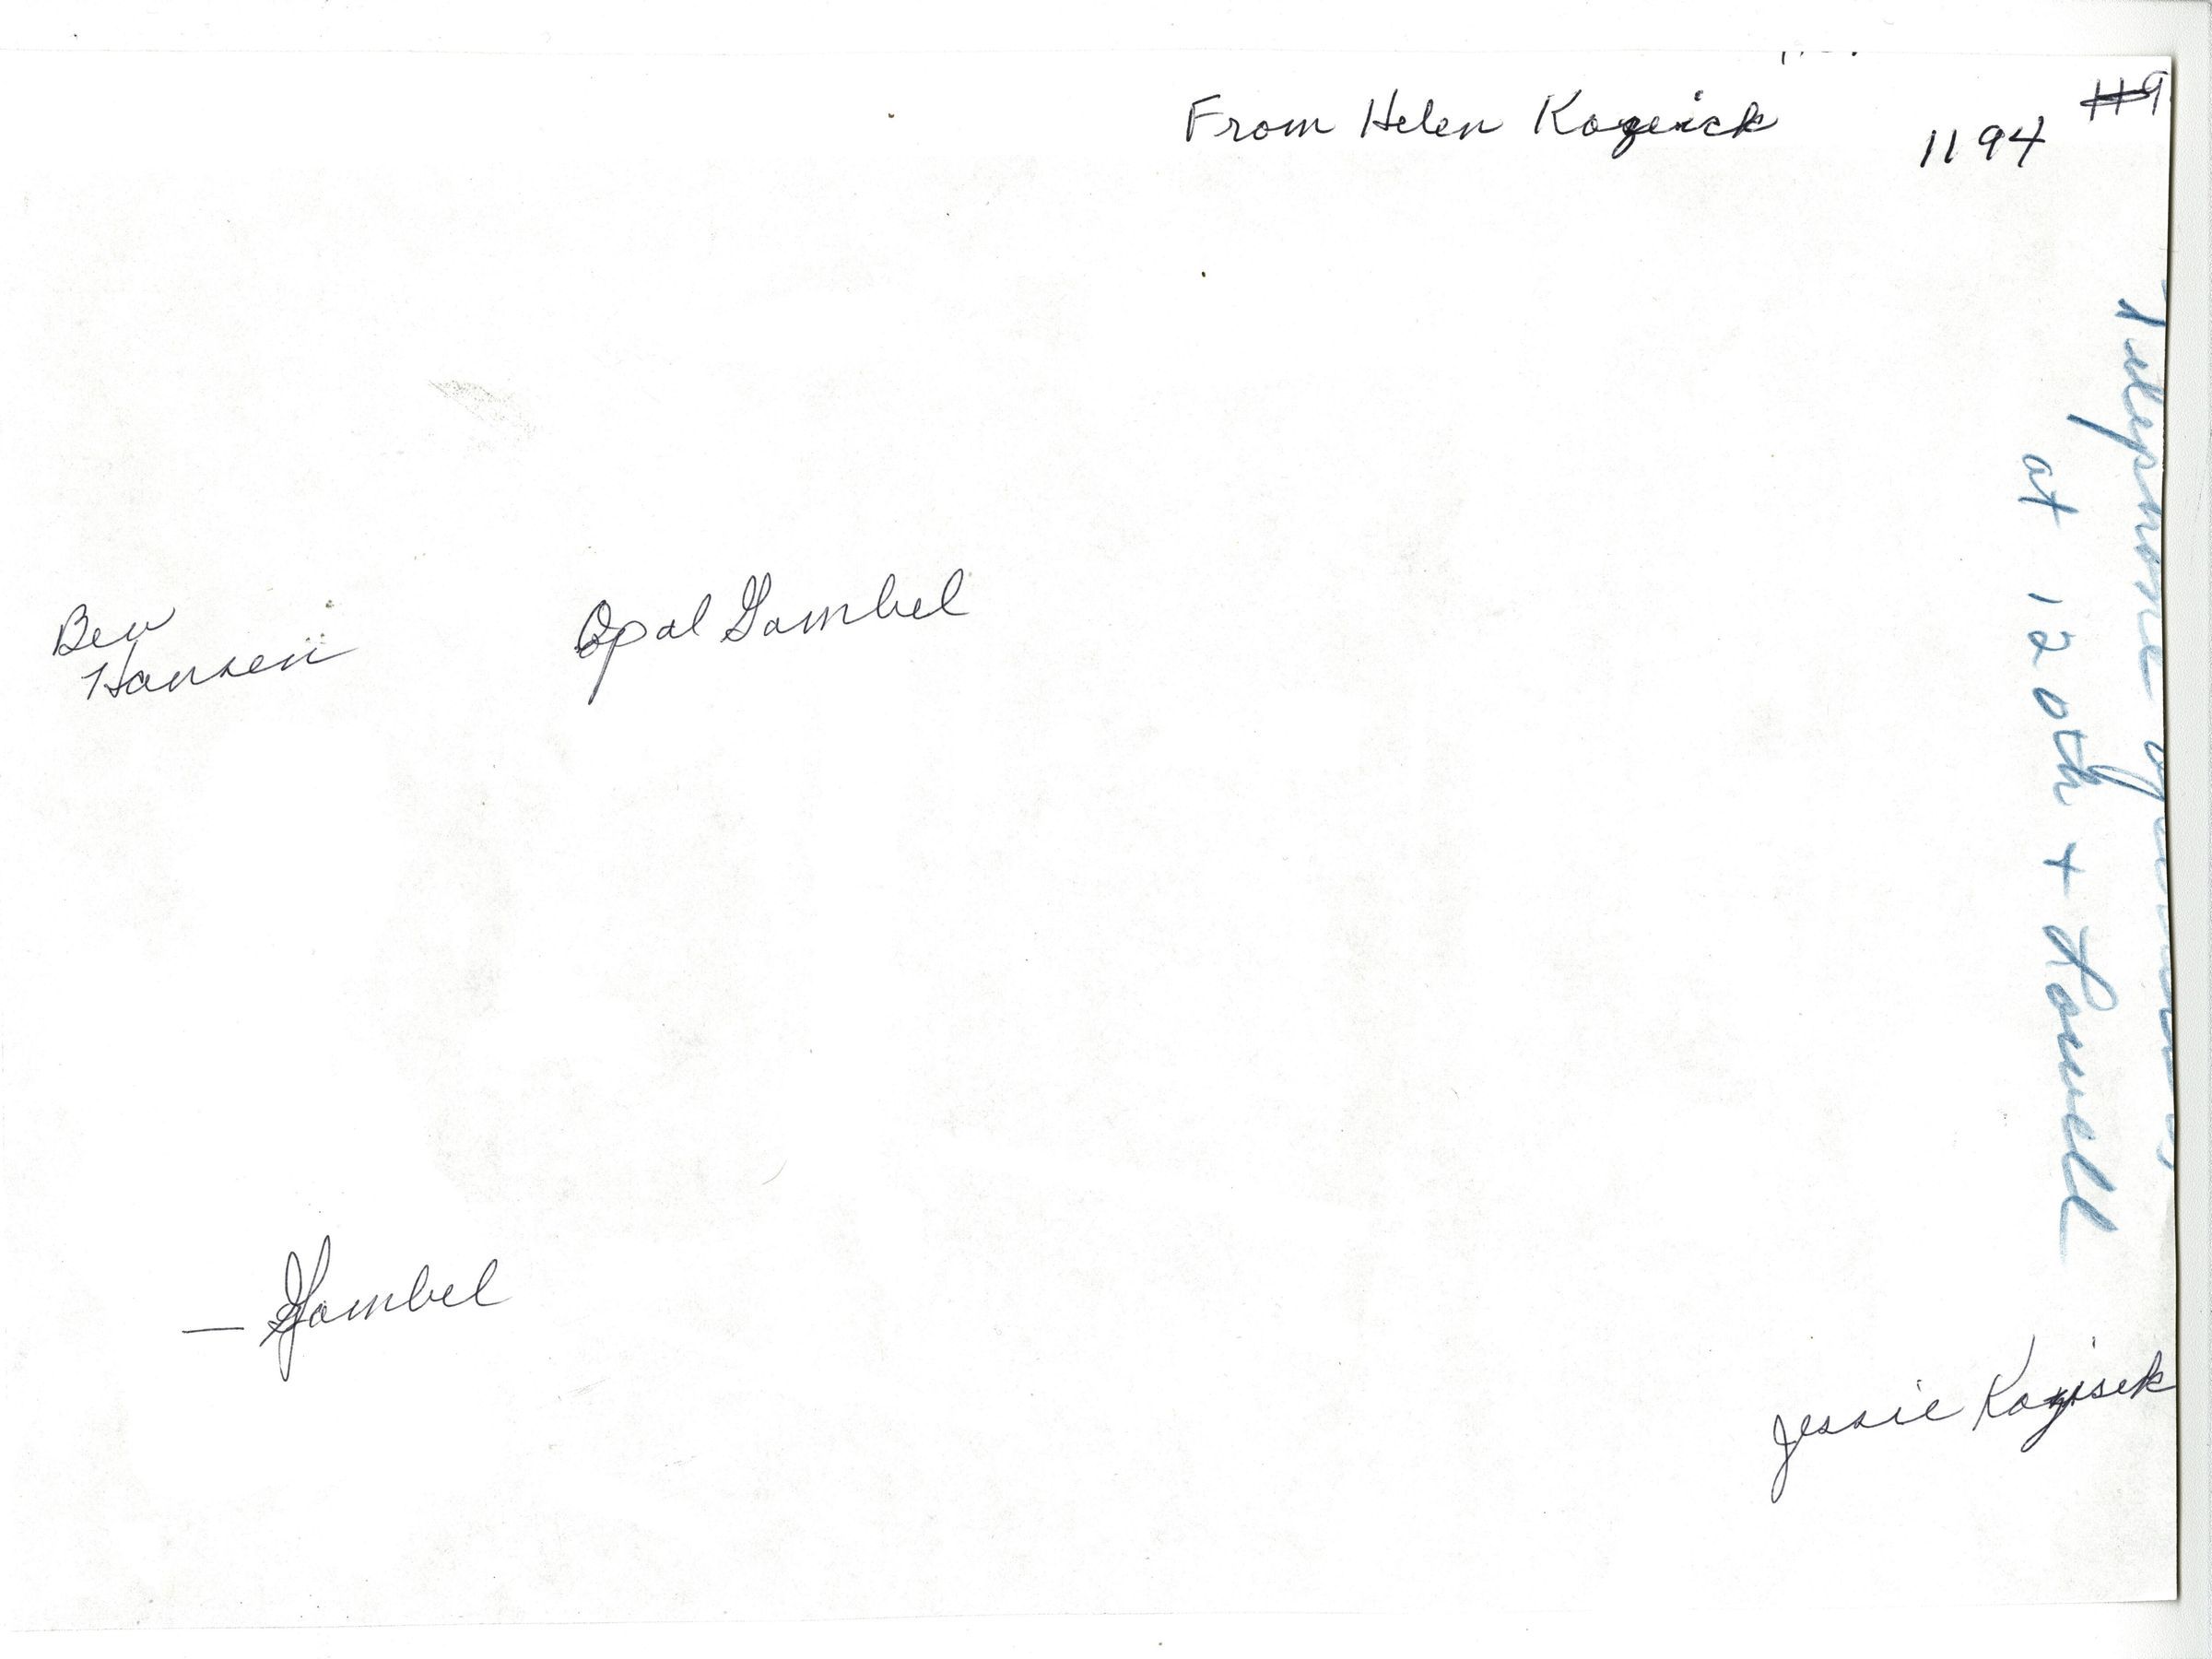 #9
From Helen Kozeick
1194
Telephone operators
at 120th + Howell
Ben
Hansen
Opal Gambel
— Gambel
Jessie Kozisek